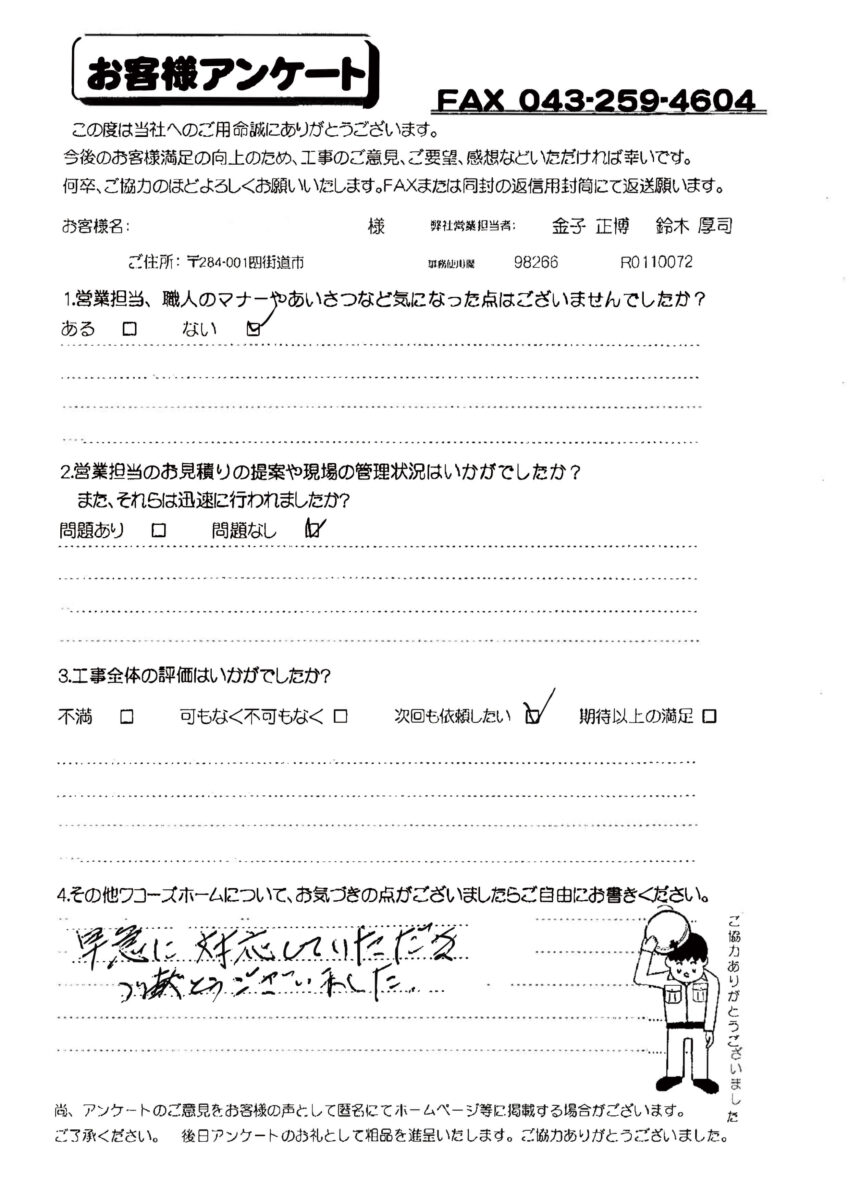 お客様アンケート
FAX 043-259-4604
この度は当社へのご用命誠にありがとうございます。
今後のお客様満足の向上のため、工事のご意見、ご要望、感想などいただければ幸いです。
何卒、ご協力のほどよろしくお願いいたします。FAXまたは同封の返信用封筒にて返送願います。
お客様名: 様 弊社営業担当者: 金子 正博 鈴木 厚司
ご住所: 〒284-001四街道市 事務使用欄 98266 R0110072
1.営業担当、職人のマナーやあいさつなど気になった点はございませんでしたか?
ある □ ない ☑
2.営業担当のお見積りの提案や現場の管理状況はいかがでしたか?
また、それらは迅速に行われましたか?
問題あり □ 問題なし ☑
3.工事全体の評価はいかがでしたか?
不満 □ 可もなく不可もなく □ 次回も依頼したい ☑ 期待以上の満足 □
4.その他ワコーズホームについて、お気づきの点がございましたらご自由にお書きください。
早急に対応していただき
とうございました。
ご協力ありがとうございました
尚、アンケートのご意見をお客様の声として匿名にてホームページ等に掲載する場合がございます。
ご了承ください。 後日アンケートのお礼として粗品を進呈いたします。ご協力ありがとうございました。